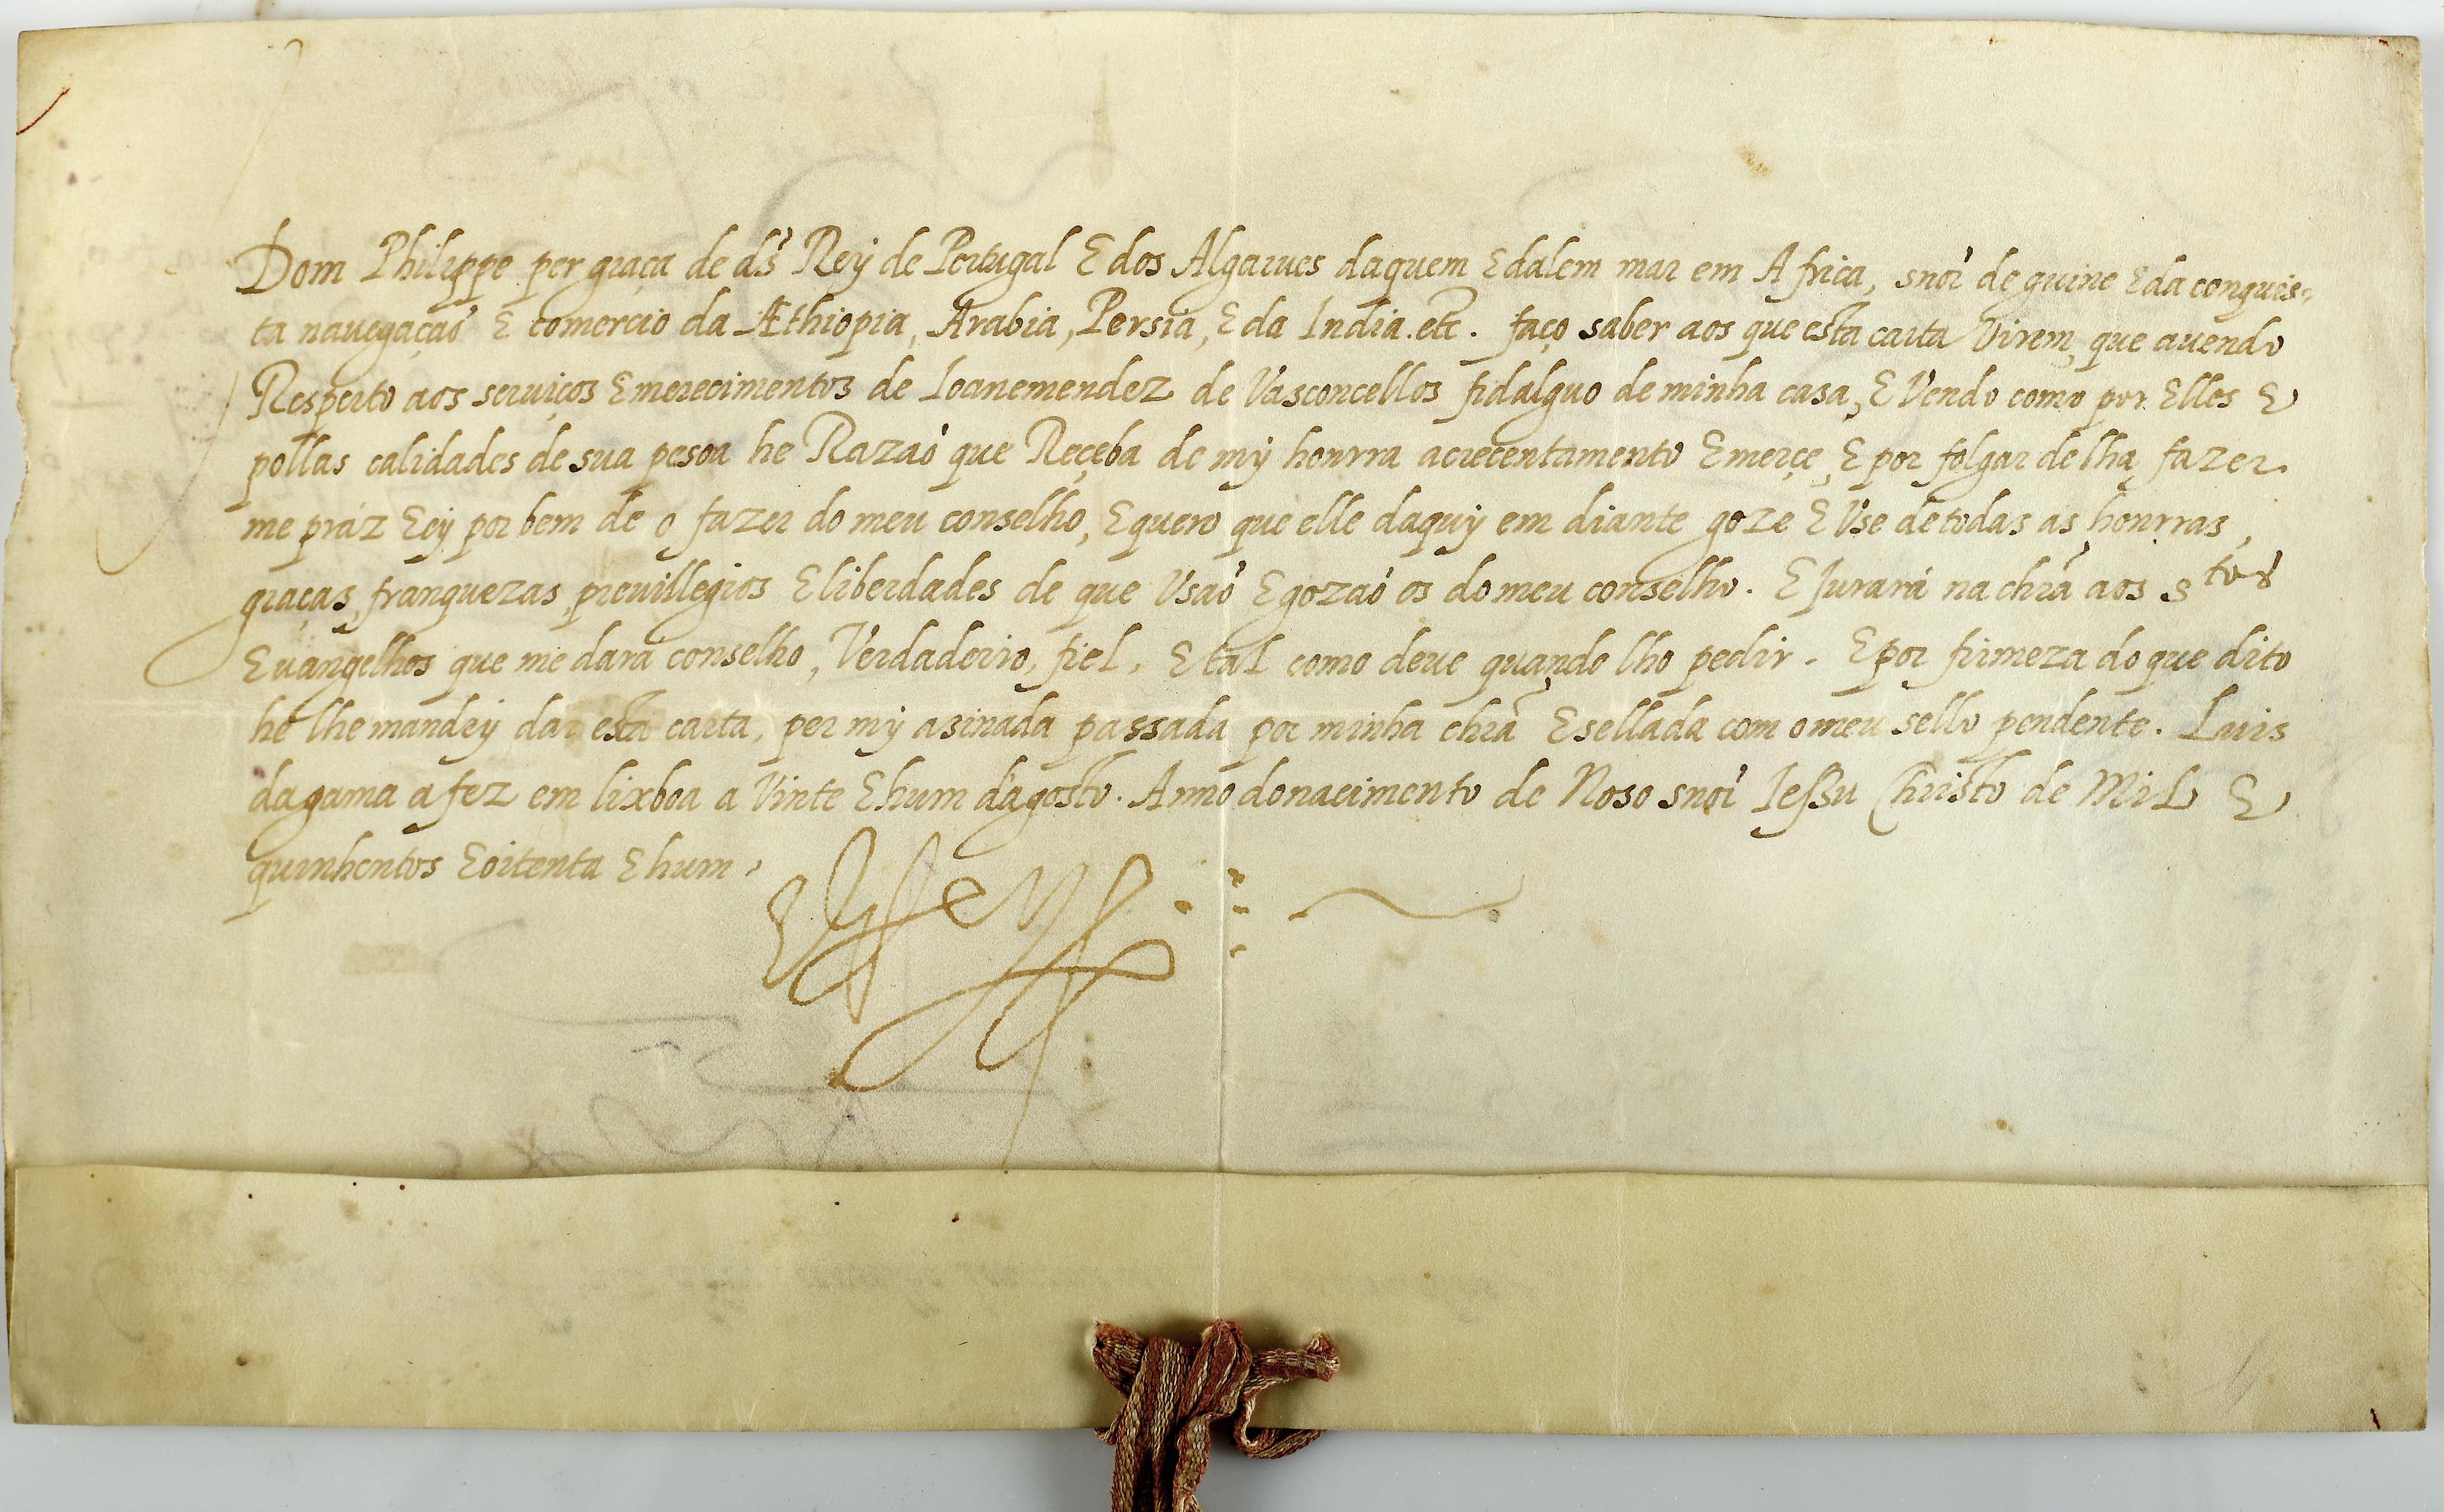 Dom Philippe per graça de ds̃ Rey de Portugal E dos Algarues daquem E dalem mar em Africa, snõr de guine E da conquis-
ta nauegaçaõ E comercio da Æthiopia, Arabia, Persia, E da India. etc. faço saber aos que esta carta Virem, que auendo
Respeito aos seruiços E merecimentos de Ioanemendez de Vasconcellos fidalguo de minha casa, E Vendo como por Elles E
pollas calidades de sua pesoa he Razaõ que Reçeba de my honrra acrecentamento E merçe, E por folgar de lha fazer
me práz E ey por bem de o fazer do meu conselho, E quero que elle daquy em diante goze E Vse de todas as honrras,
graças, franquezas, preuillegios E liberdades de que Vsaõ E gozaõ os do meu conselho. E Jurará na chrã aos stos
Euangelhos que me dará conselho, Verdadeiro, fiel, E tal como deue quando lho pedir. E por firmeza do que dito
he lhe mandey dar esta carta, per my asinada passada por minha chrã E sellada com o meu sello pendente. Luis
dagama a fez em lixboa a Vinte E hum dagosto. Anno do nacimento de Noso snõr Jeſsu Christo de Mil E
quinhentos E oitenta E hum.